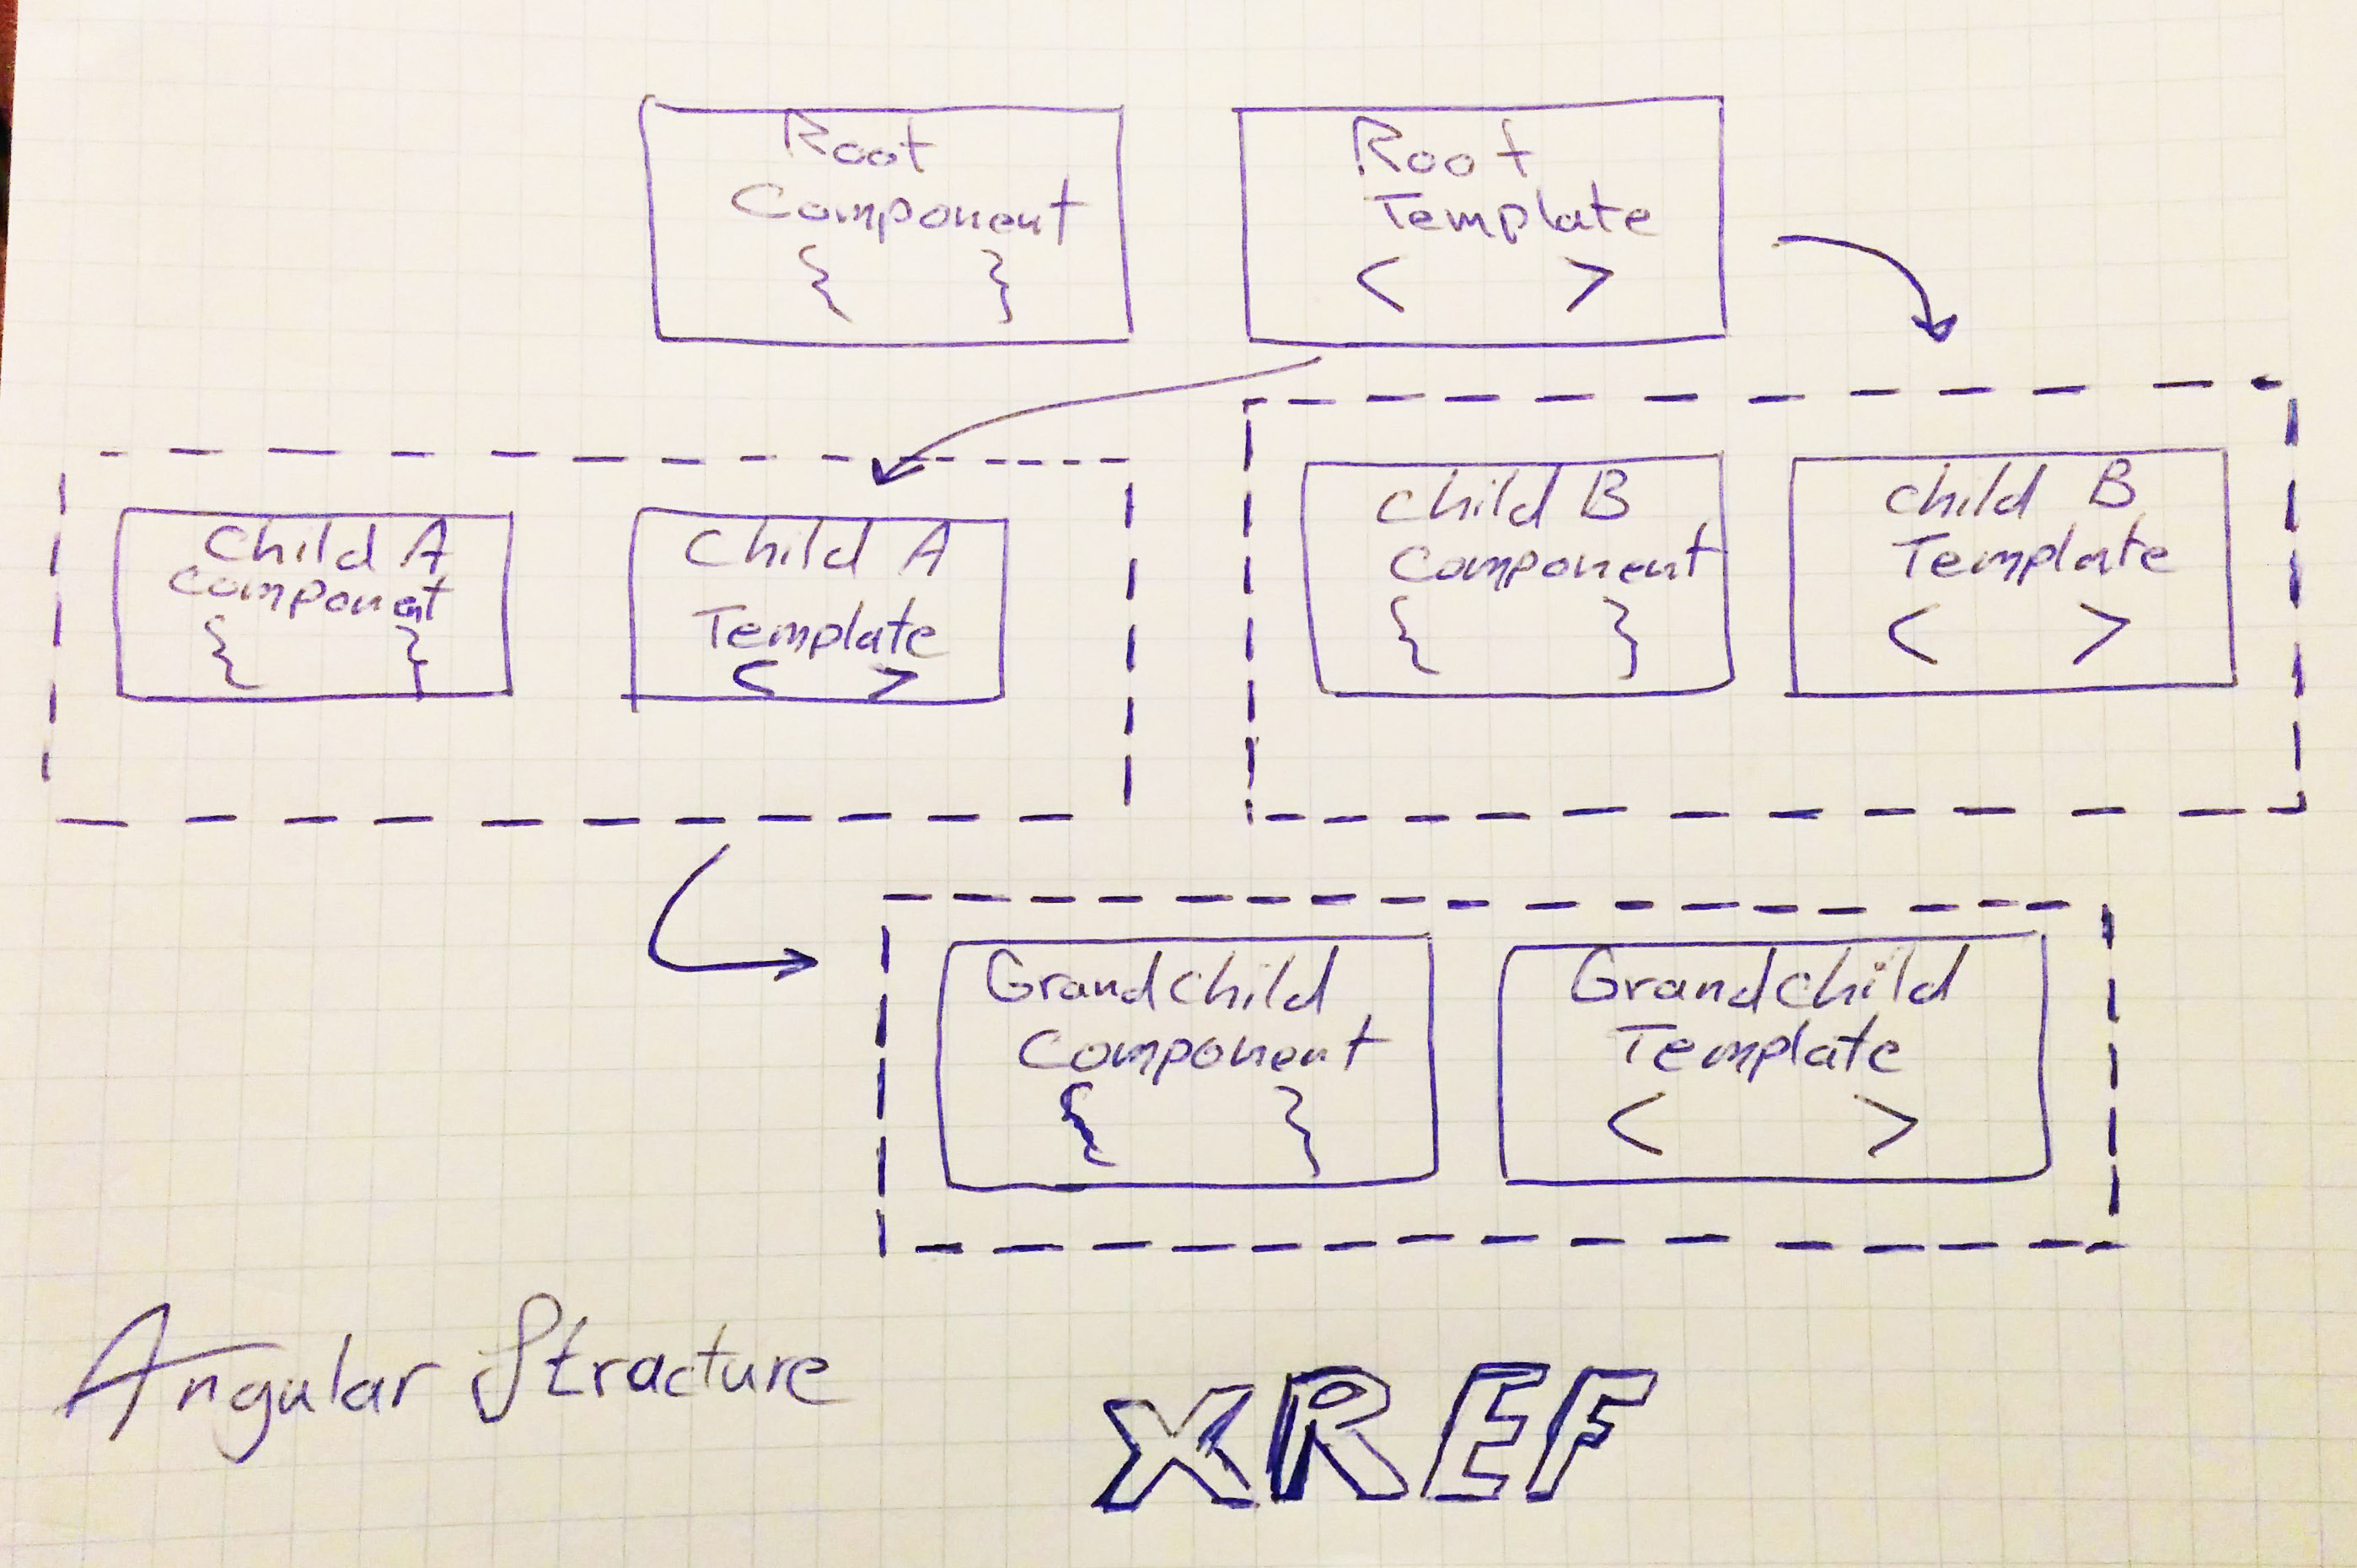 Root
Component
{ }
Root
Template
< >
Child A
Component
{ }
Child A
Template
< >
Child B
Component
{ }
Child B
Template
< >
Grandchild
Component
{ }
Grandchild
Template
< >
Angular Structure
XREF